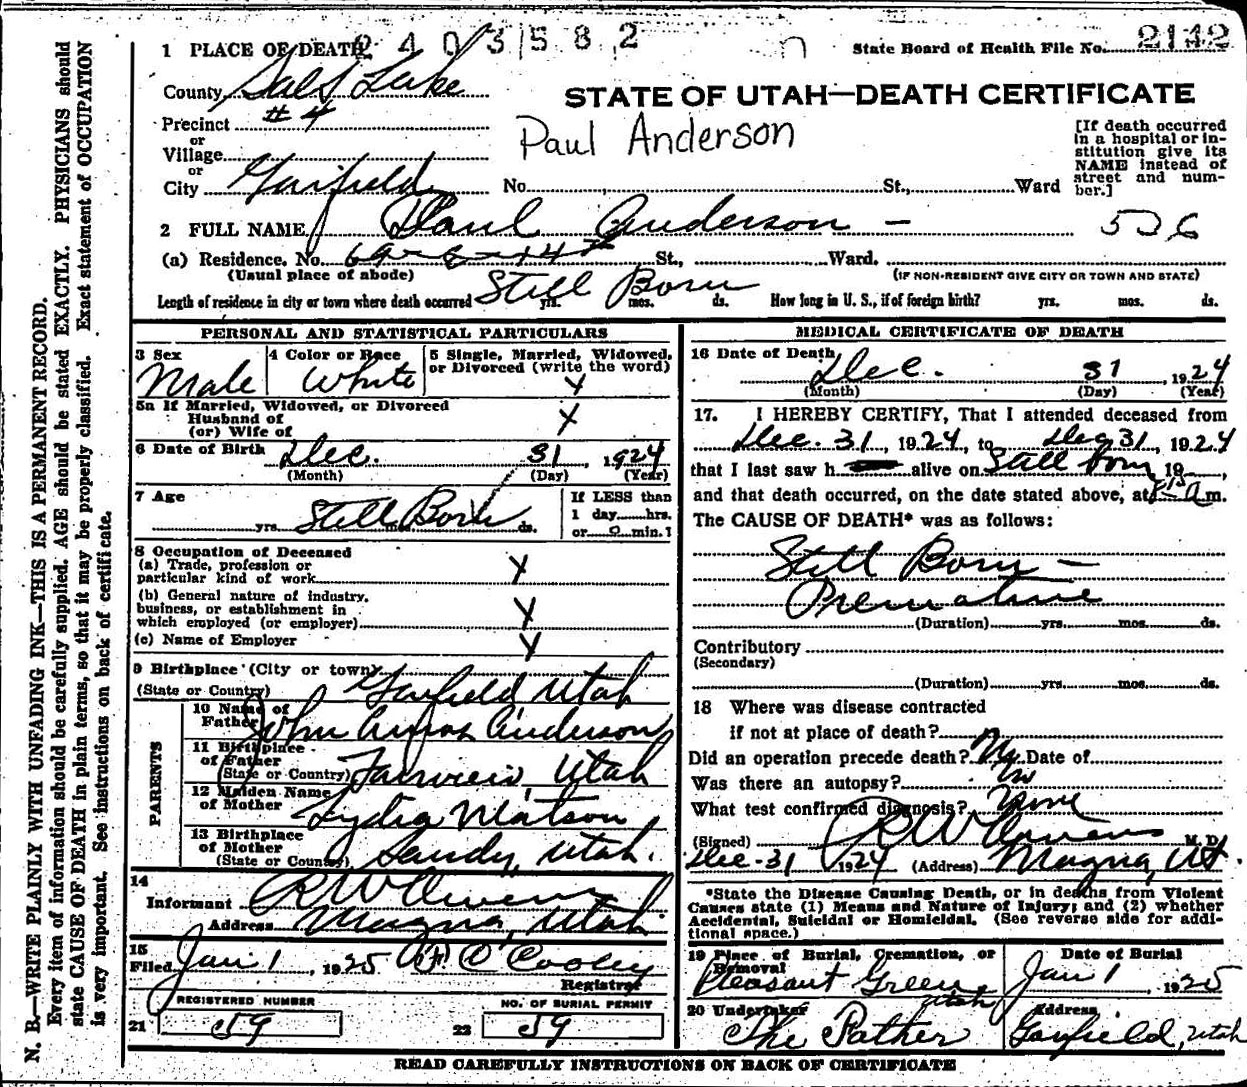 N. B.—WRITE PLAINLY WITH UNFADING INK—THIS IS A PERMANENT RECORD.
Every item of information should be carefully supplied. AGE should be stated EXACTLY. PHYSICIANS should
state CAUSE OF DEATH in plain terms, so that it may be properly classified. Exact statement of OCCUPATION
is very important. See instructions on back of certificate.
2403582
State Board of Health File No. 2142
1 PLACE OF DEATH
County Salt Lake
STATE OF UTAH—DEATH CERTIFICATE
Precinct #4
Paul Anderson
or
Village
or
City Garfield
No. , St., Ward
[If death occurred
in a hospital or in-
stitution give its
NAME instead of
street and num-
ber.]
2 FULL NAME Paul Anderson —
526
(a) Residence. No. St., Ward.
(Usual place of abode)
(IF NON-RESIDENT GIVE CITY OR TOWN AND STATE)
Length of residence in city or town where death occurred Still Born yrs. mos. ds. How long in U. S., if of foreign birth? yrs. mos. ds.
PERSONAL AND STATISTICAL PARTICULARS
3 Sex Male
4 Color or Race White
5 Single, Married, Widowed,
or Divorced (write the word)
X
5a If Married, Widowed, or Divorced
Husband of
(or) Wife of
X
6 Date of Birth Dec. 31, 1924
(Month) (Day) (Year)
7 Age
Still Born
yrs. mos. ds.
If LESS than
1 day hrs.
or 0 min.?
8 Occupation of Deceased
(a) Trade, profession or
particular kind of work X
(b) General nature of industry,
business, or establishment in
which employed (or employer) X
(c) Name of Employer X
9 Birthplace (City or town)
(State or Country) Garfield, Utah
PARENTS
10 Name of
Father John Amos Anderson
11 Birthplace
of Father
(State or Country) Fairview, Utah
12 Maiden Name
of Mother Lydia Matson
13 Birthplace
of Mother
(State or Country) Sandy, Utah.
14
Informant R W Owens
Address Magna, Utah
15
Filed Jan 1, 1925 Cooley
Registrar
REGISTERED NUMBER
21 59
NO. OF BURIAL PERMIT
22 59
MEDICAL CERTIFICATE OF DEATH
16 Date of Death Dec. 31, 1924
(Month) (Day) (Year)
17. I HEREBY CERTIFY, That I attended deceased from
Dec. 31, 1924, to Dec 31, 1924
that I last saw h alive on Still born 19 ,
and that death occurred, on the date stated above, at 8 15 a m.
The CAUSE OF DEATH* was as follows:
Still Born —
Premature
(Duration) yrs. mos. ds.
Contributory
(Secondary)
(Duration) yrs. mos. ds.
18 Where was disease contracted
if not at place of death?
Did an operation precede death? No Date of
Was there an autopsy? No
What test confirmed diagnosis? None
(Signed) R W Owens M. D.
Dec-31, 1924 (Address) Magna, Ut.
*State the Disease Causing Death, or in deaths from Violent
Causes state (1) Means and Nature of Injury; and (2) whether
Accidental, Suicidal or Homicidal. (See reverse side for addi-
tional space.)
19 Place of Burial, Cremation, or
Removal
Pleasant Green
Utah
Date of Burial
Jan 1, 1925
20 Undertaker
The Father
Address
Garfield, Utah
READ CAREFULLY INSTRUCTIONS ON BACK OF CERTIFICATE